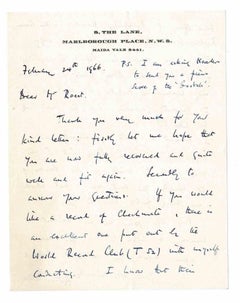 8, THE LANE,
MARLBOROUGH PLACE, N.W.8.
MAIDA VALE 2421.
February 24th 1966. P.S. I am asking Novello
to send you a
score of the
Dear Mr
Thank you very much for your
kind letter: firstly let me hope that
you are now fully recovered and quite
well and fit again. Secondly to
answer your questions. If you would
like a record of Checkmate, there is
an excellent one put out by the
World Record Club (T 52) with myself
conducting. I know that their